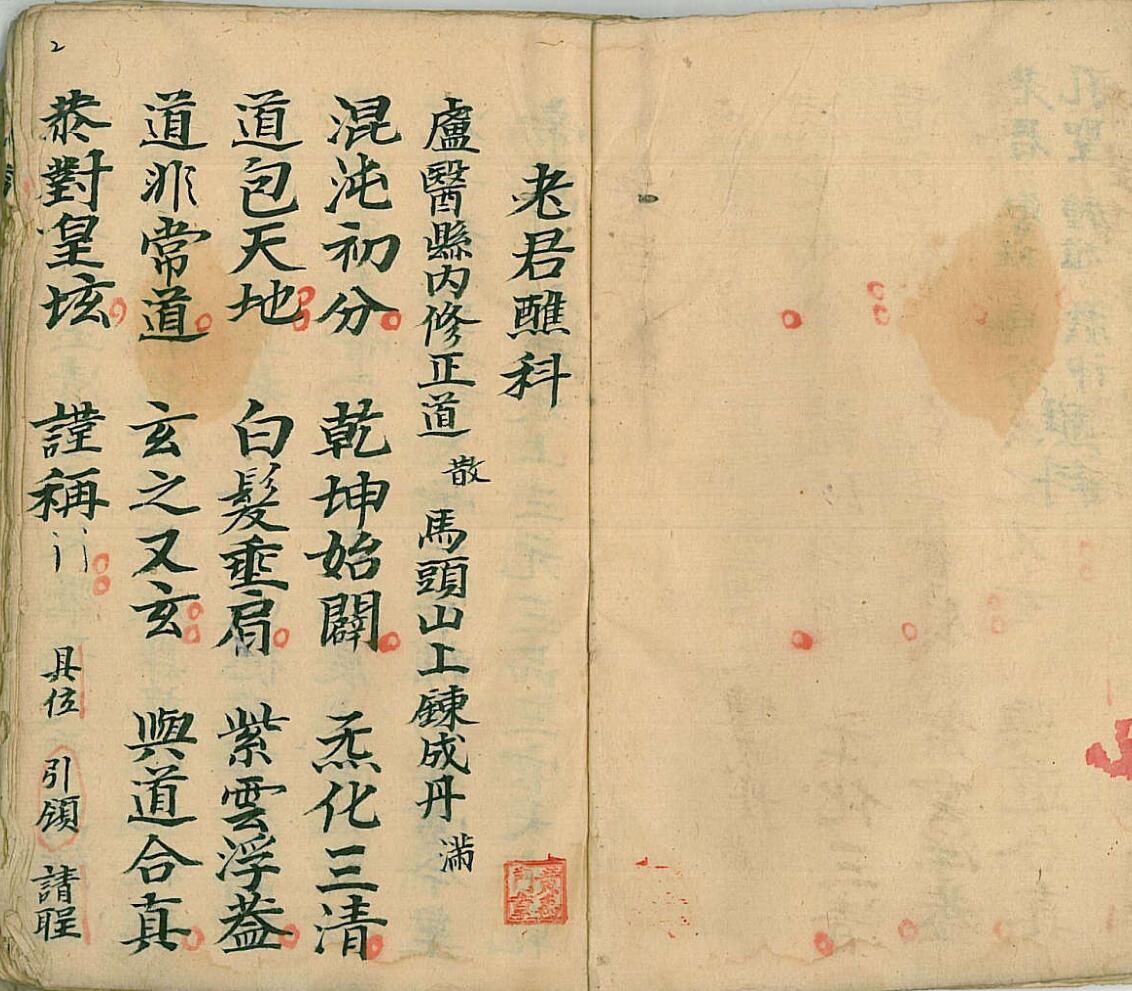 老君醮科
盧醫縣內修正道 散 馬頭山上鍊成丹 滿
混沌初分 乾坤始闢 炁化三清
道包天地 白髮垂肩 紫雲浮蓋
道非常道 玄之又玄 與道合真
恭對皇垓 謹稱 具位 引領 請聖
2